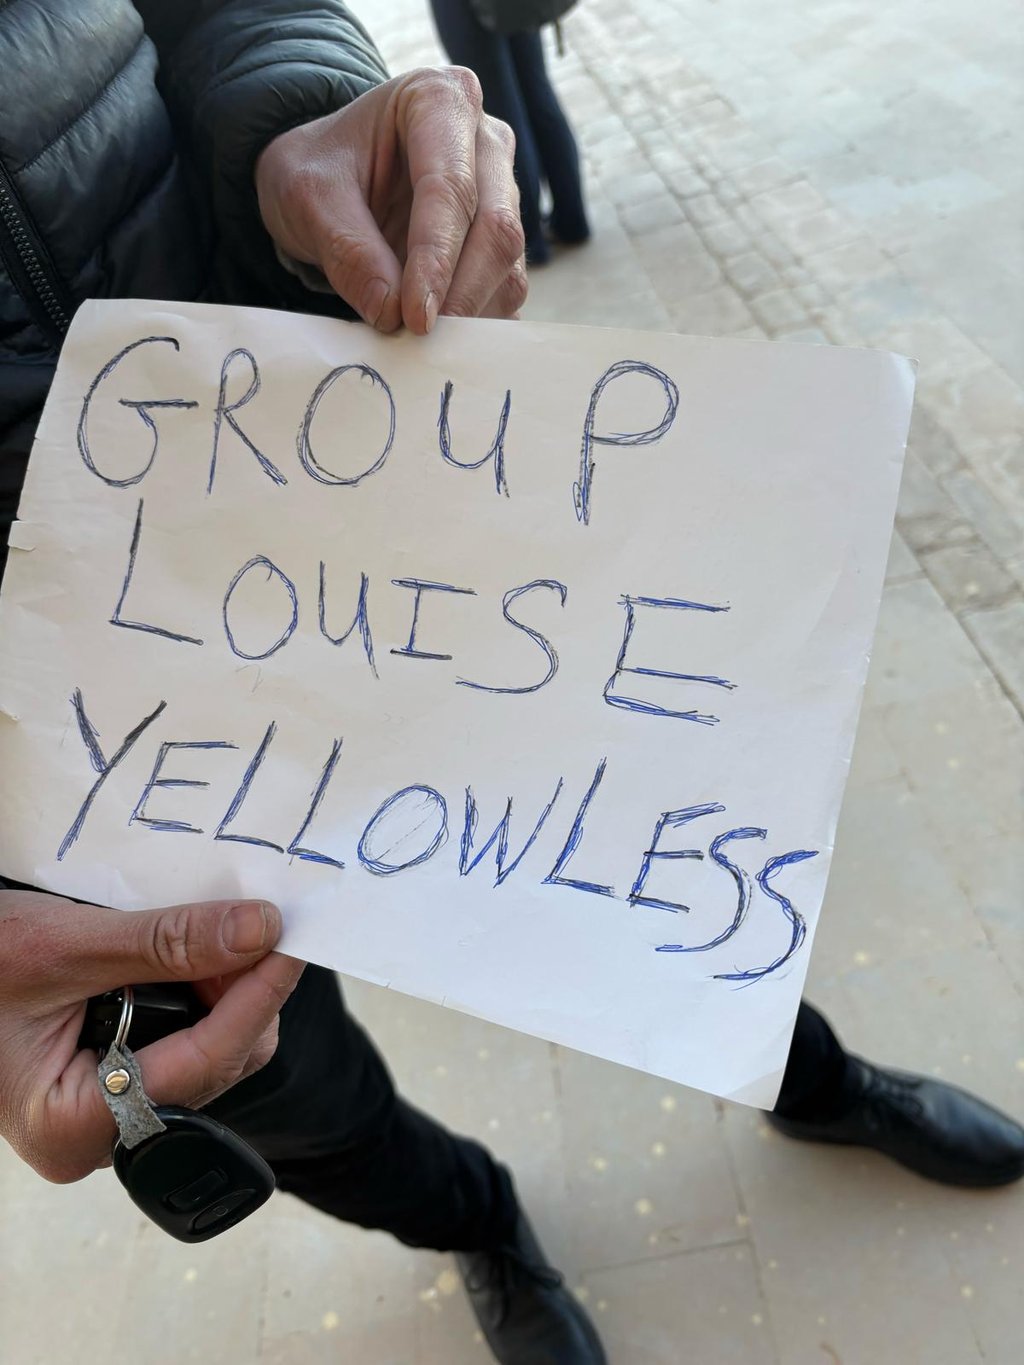 GROUP
LOUISE
YELLOWLESS